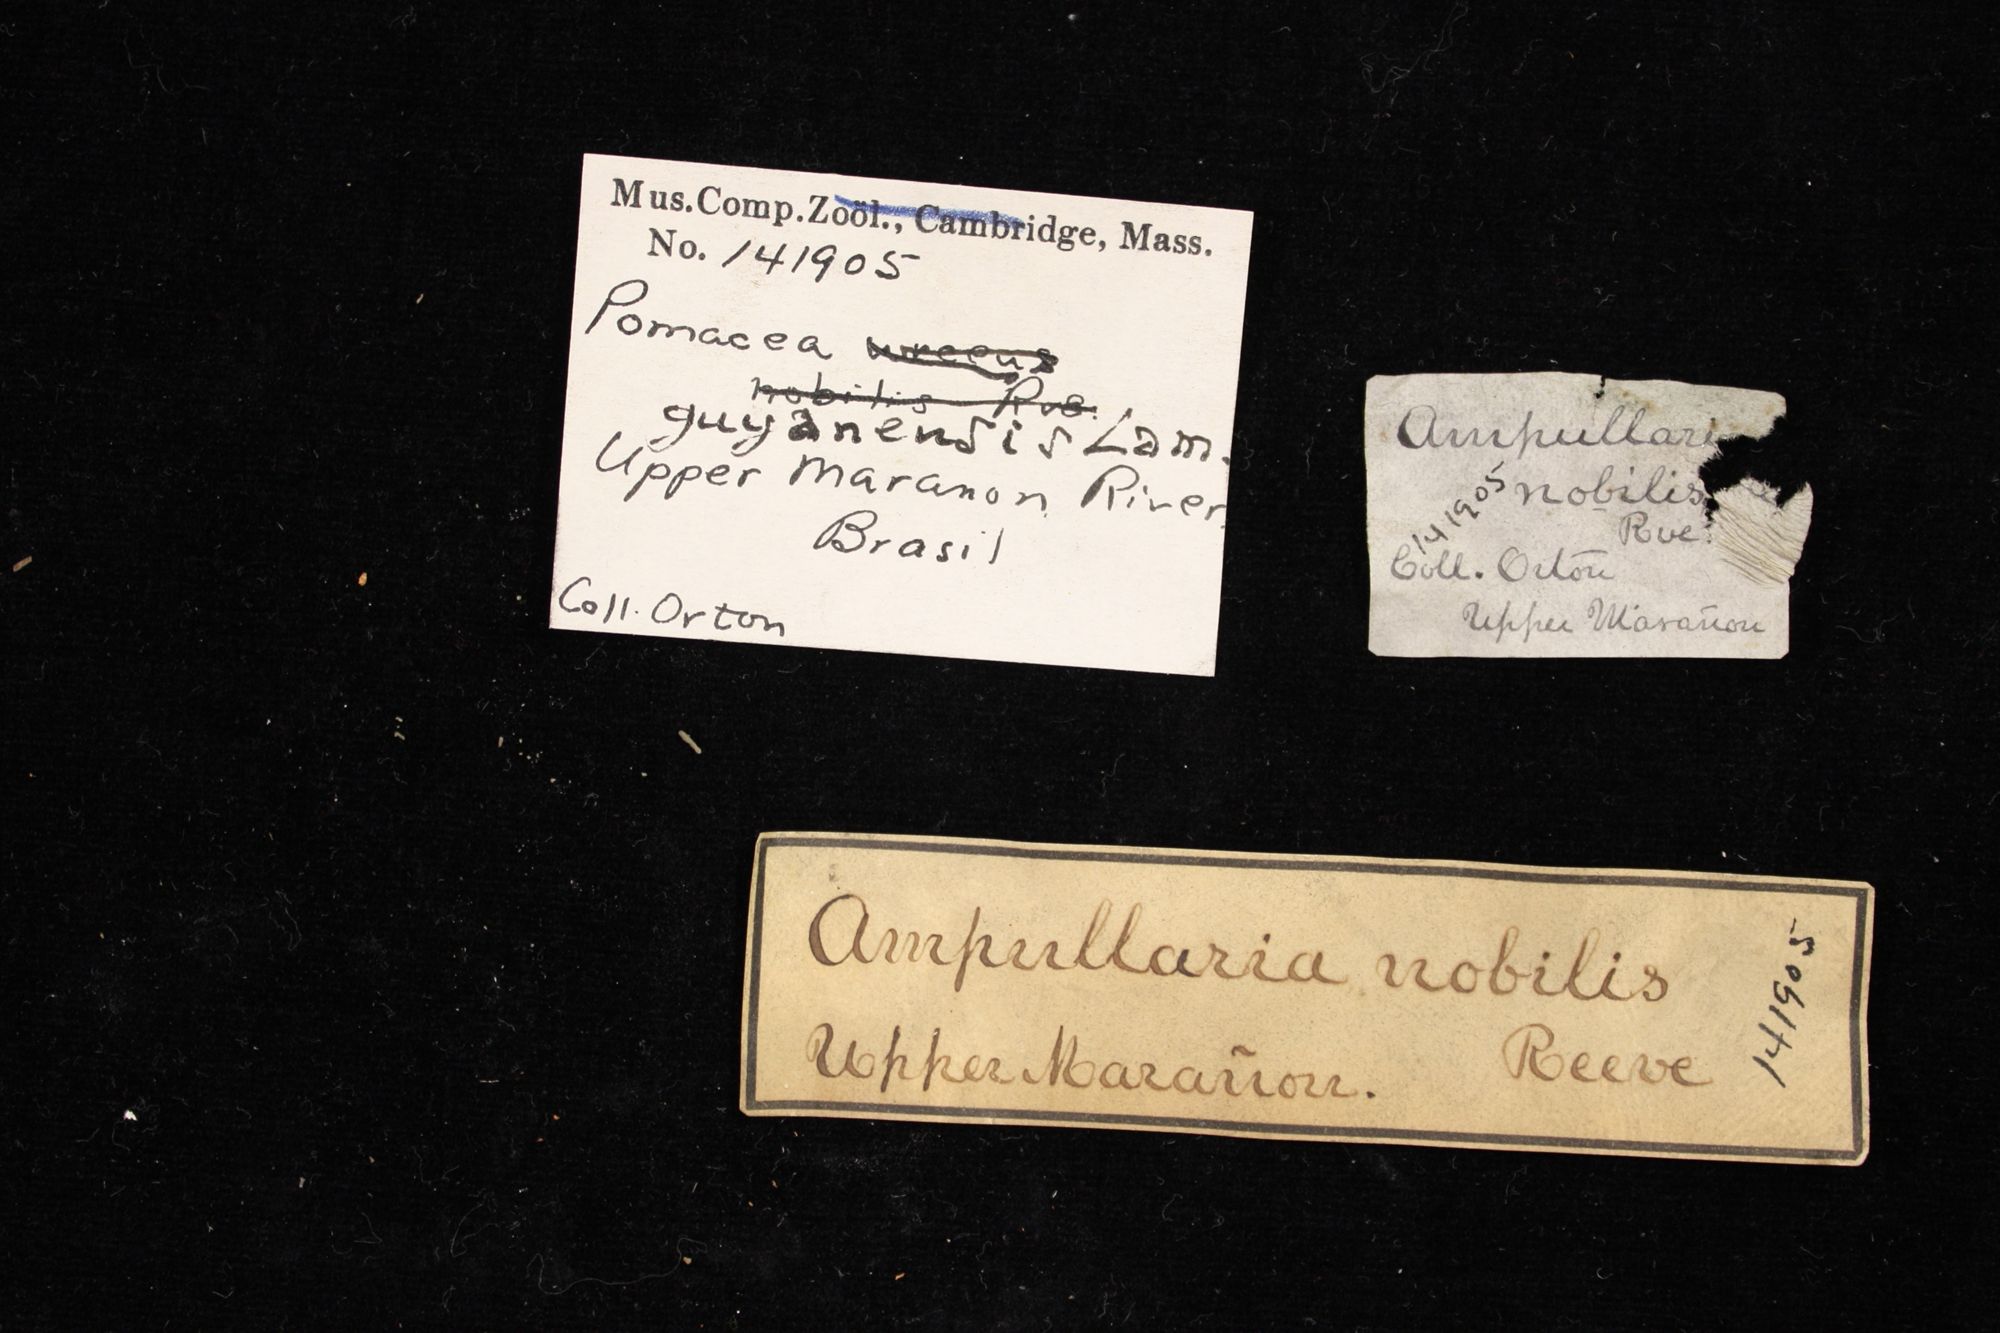 Mus.Comp.Zoöl., Cambridge, Mass.
No. 141905
Pomacea urceus
nobilis Rve.
guyanensis Lam.
Upper Maranon River
Brasil
Coll. Orton
Ampullari
nobilis
141905
Rve.
Coll. Orton
Upper Marañon
Ampullaria nobilis
Upper Marañon. Reeve
141905